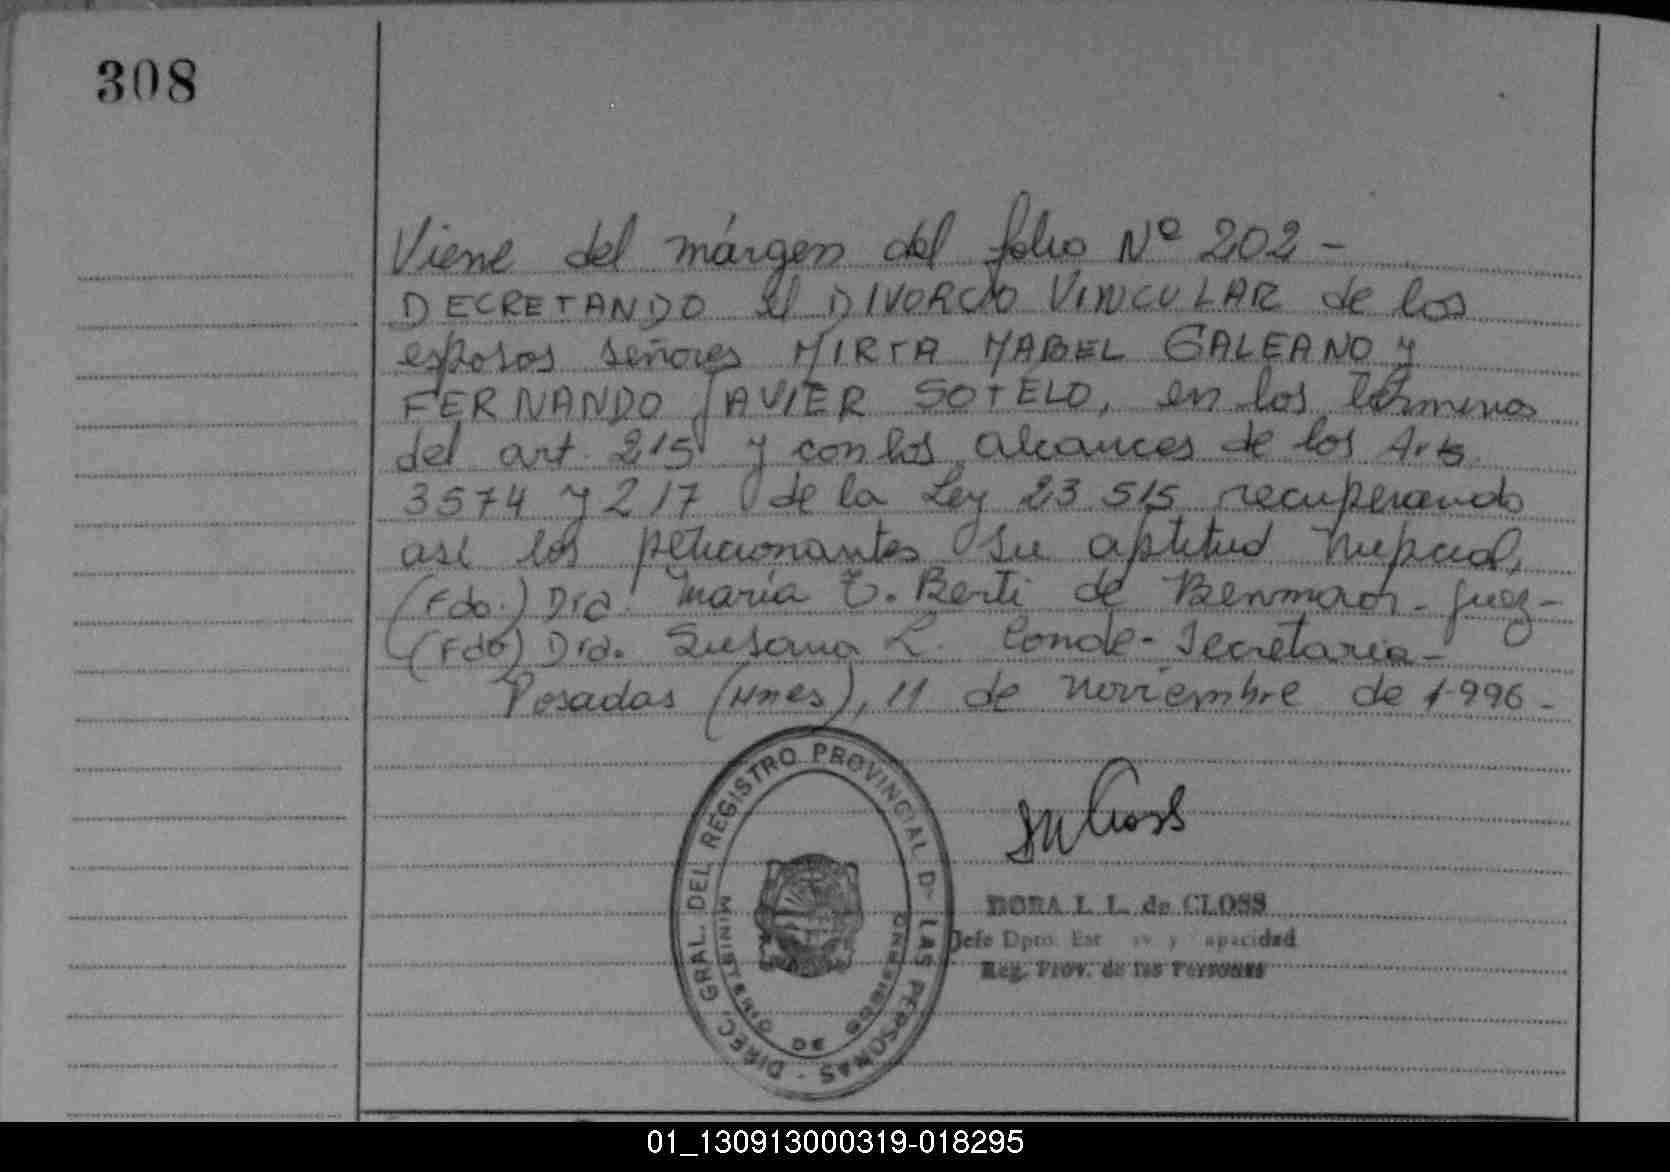 308
Viene del márgen del folio Nº 202 -
DECRETANDO el DIVORCIO VINCULAR de los
esposos señores MIRTA MABEL GALEANO y
FERNANDO JAVIER SOTELO, en los términos
del art. 215 y con los alcances de los Arts
3574 y 217 de la Ley 23.515 recuperando
así los peticionantes su aptitud nupcial,
(Fdo.) Dra. María T. Berti de Benmaor - Juez -
(Fdo) Dra. Susana L. Conde - Secretaria -
Posadas (Mnes), 11 de noviembre de 1996 -
DIREC. GRAL. DEL REGISTRO PROVINCIAL DE LAS PERSONAS -
MINISTERIO DE GOBIERNO
DORA I. L. de CLOSS
Jefe Dpto. Est y apacidad
Reg. Prov. de las Personas
01_130913000319-018295